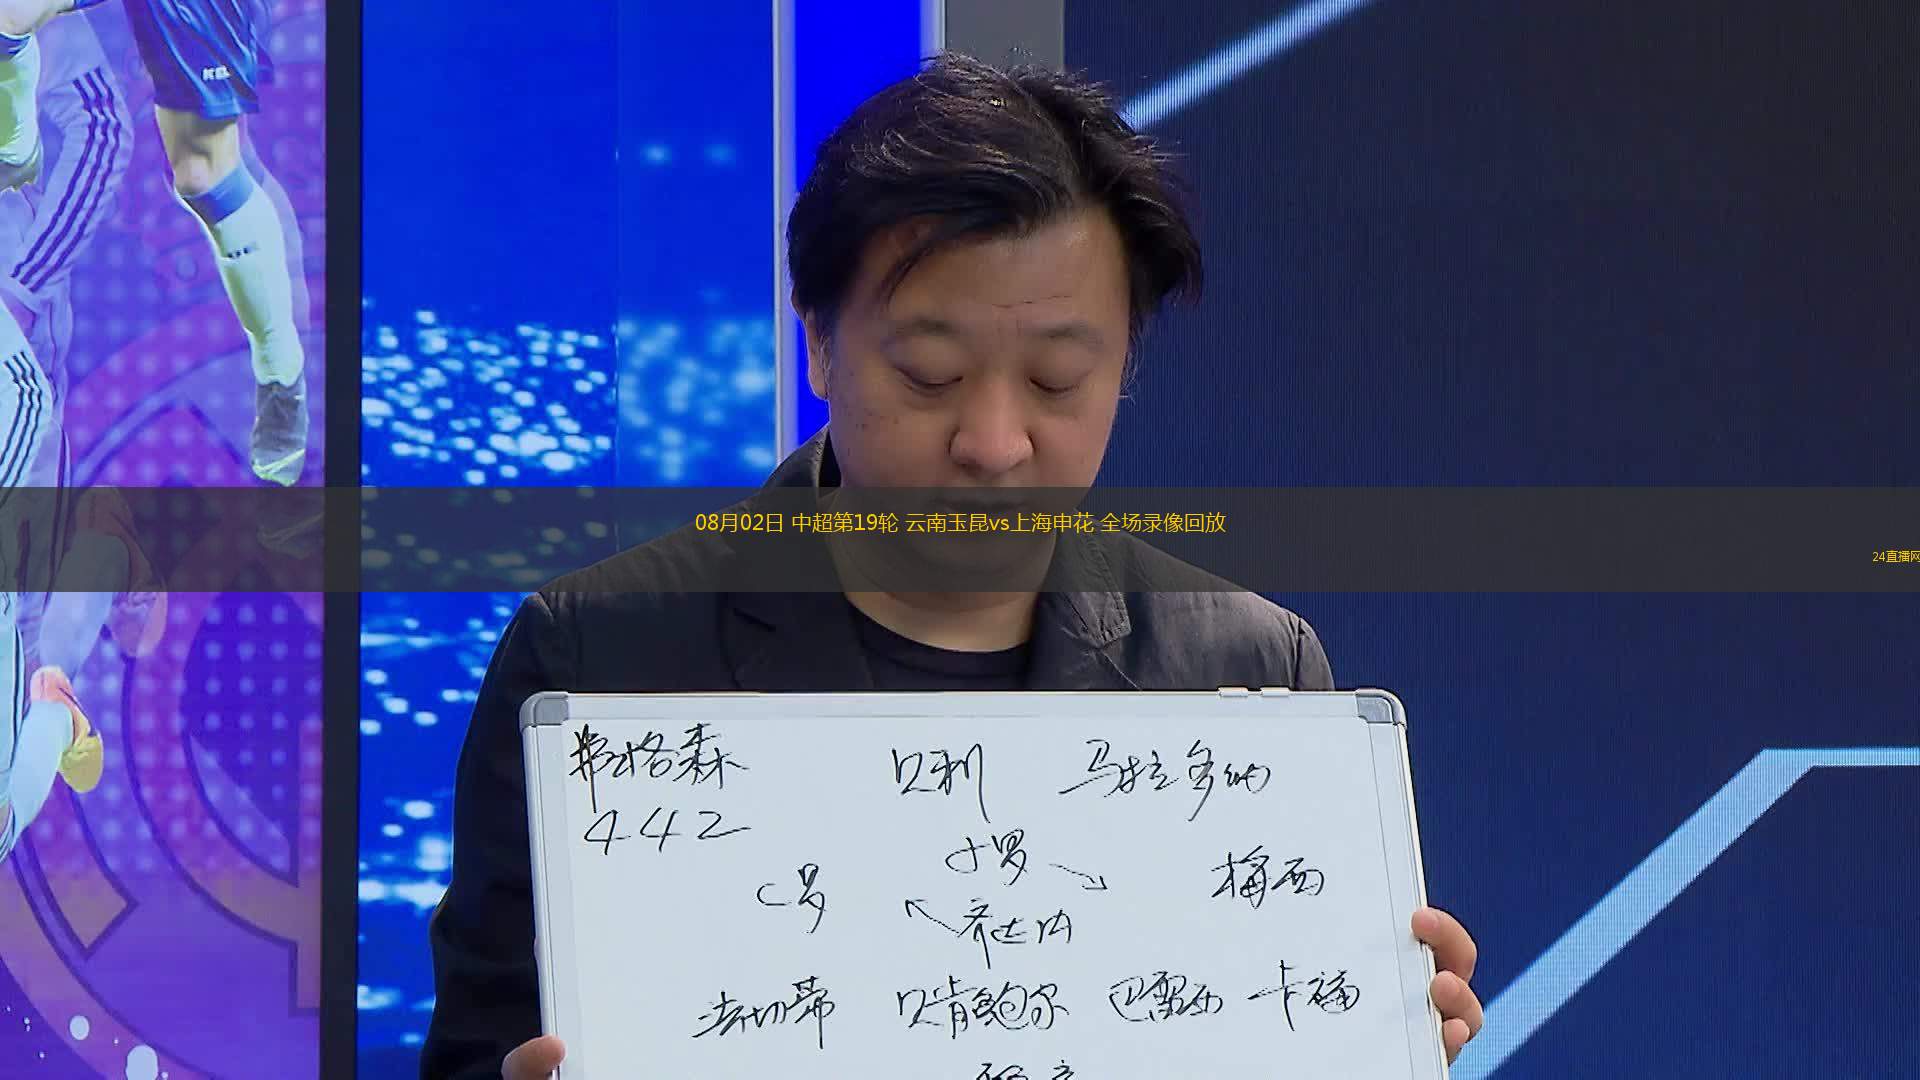 08月02日 中超第19轮 云南玉昆vs上海申花 全场录像回放
24直播网
弗格森 贝利 马拉多纳
442
小罗
C罗 梅西
齐达内
法切蒂 贝肯鲍尔 巴雷西 卡福